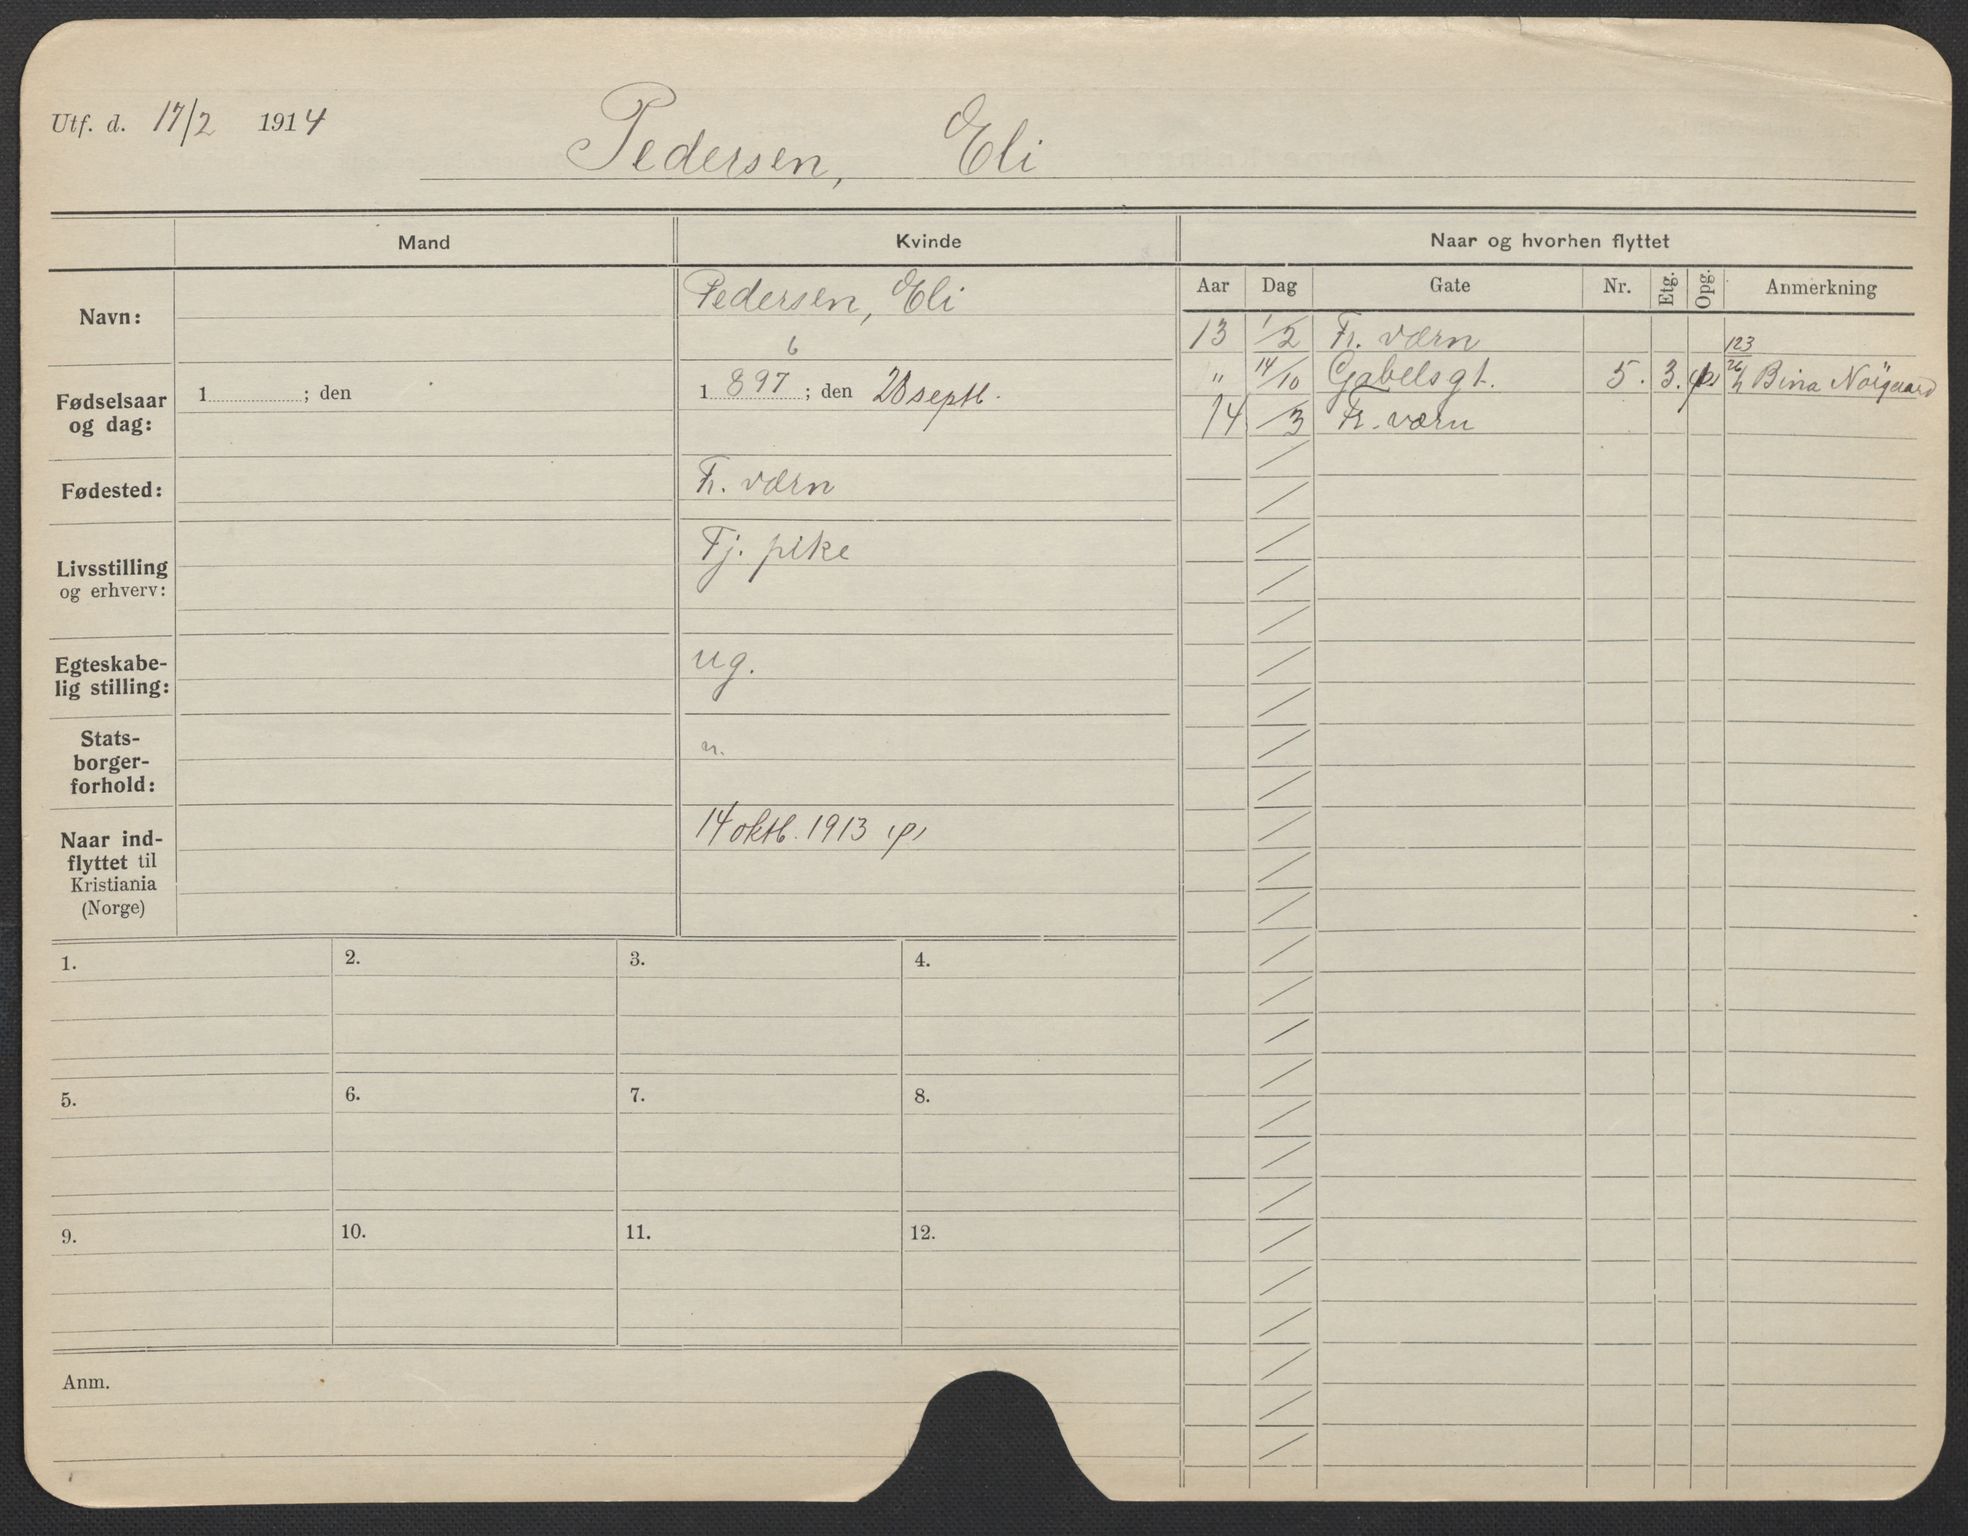 Utf. d. 17/2 1914
Pedersen, Eli
Mand
Kvinde
Naar og hvorhen flyttet
Aar Dag Gate Nr. Etg. Opg. Anmerkning
Navn:
Pedersen, Eli
6
Fødselsaar
og dag:
1 ; den
1 897 ; den 28 septb.
Fødested:
Fr. værn
Livsstilling
og erhverv:
Tj. pike
Egteskabe-
lig stilling:
ug.
Stats-
borger-
forhold:
n.
Naar ind-
flyttet til
Kristiania
(Norge)
14 oktb. 1913
13 1/2 Fr. værn
123
" 14/10 Gabelsgt. 5. 3. Bina Norgaard
14 /3 Fr. værn
1. 2. 3. 4.
5. 6. 7. 8.
9. 10. 11. 12.
Anm.